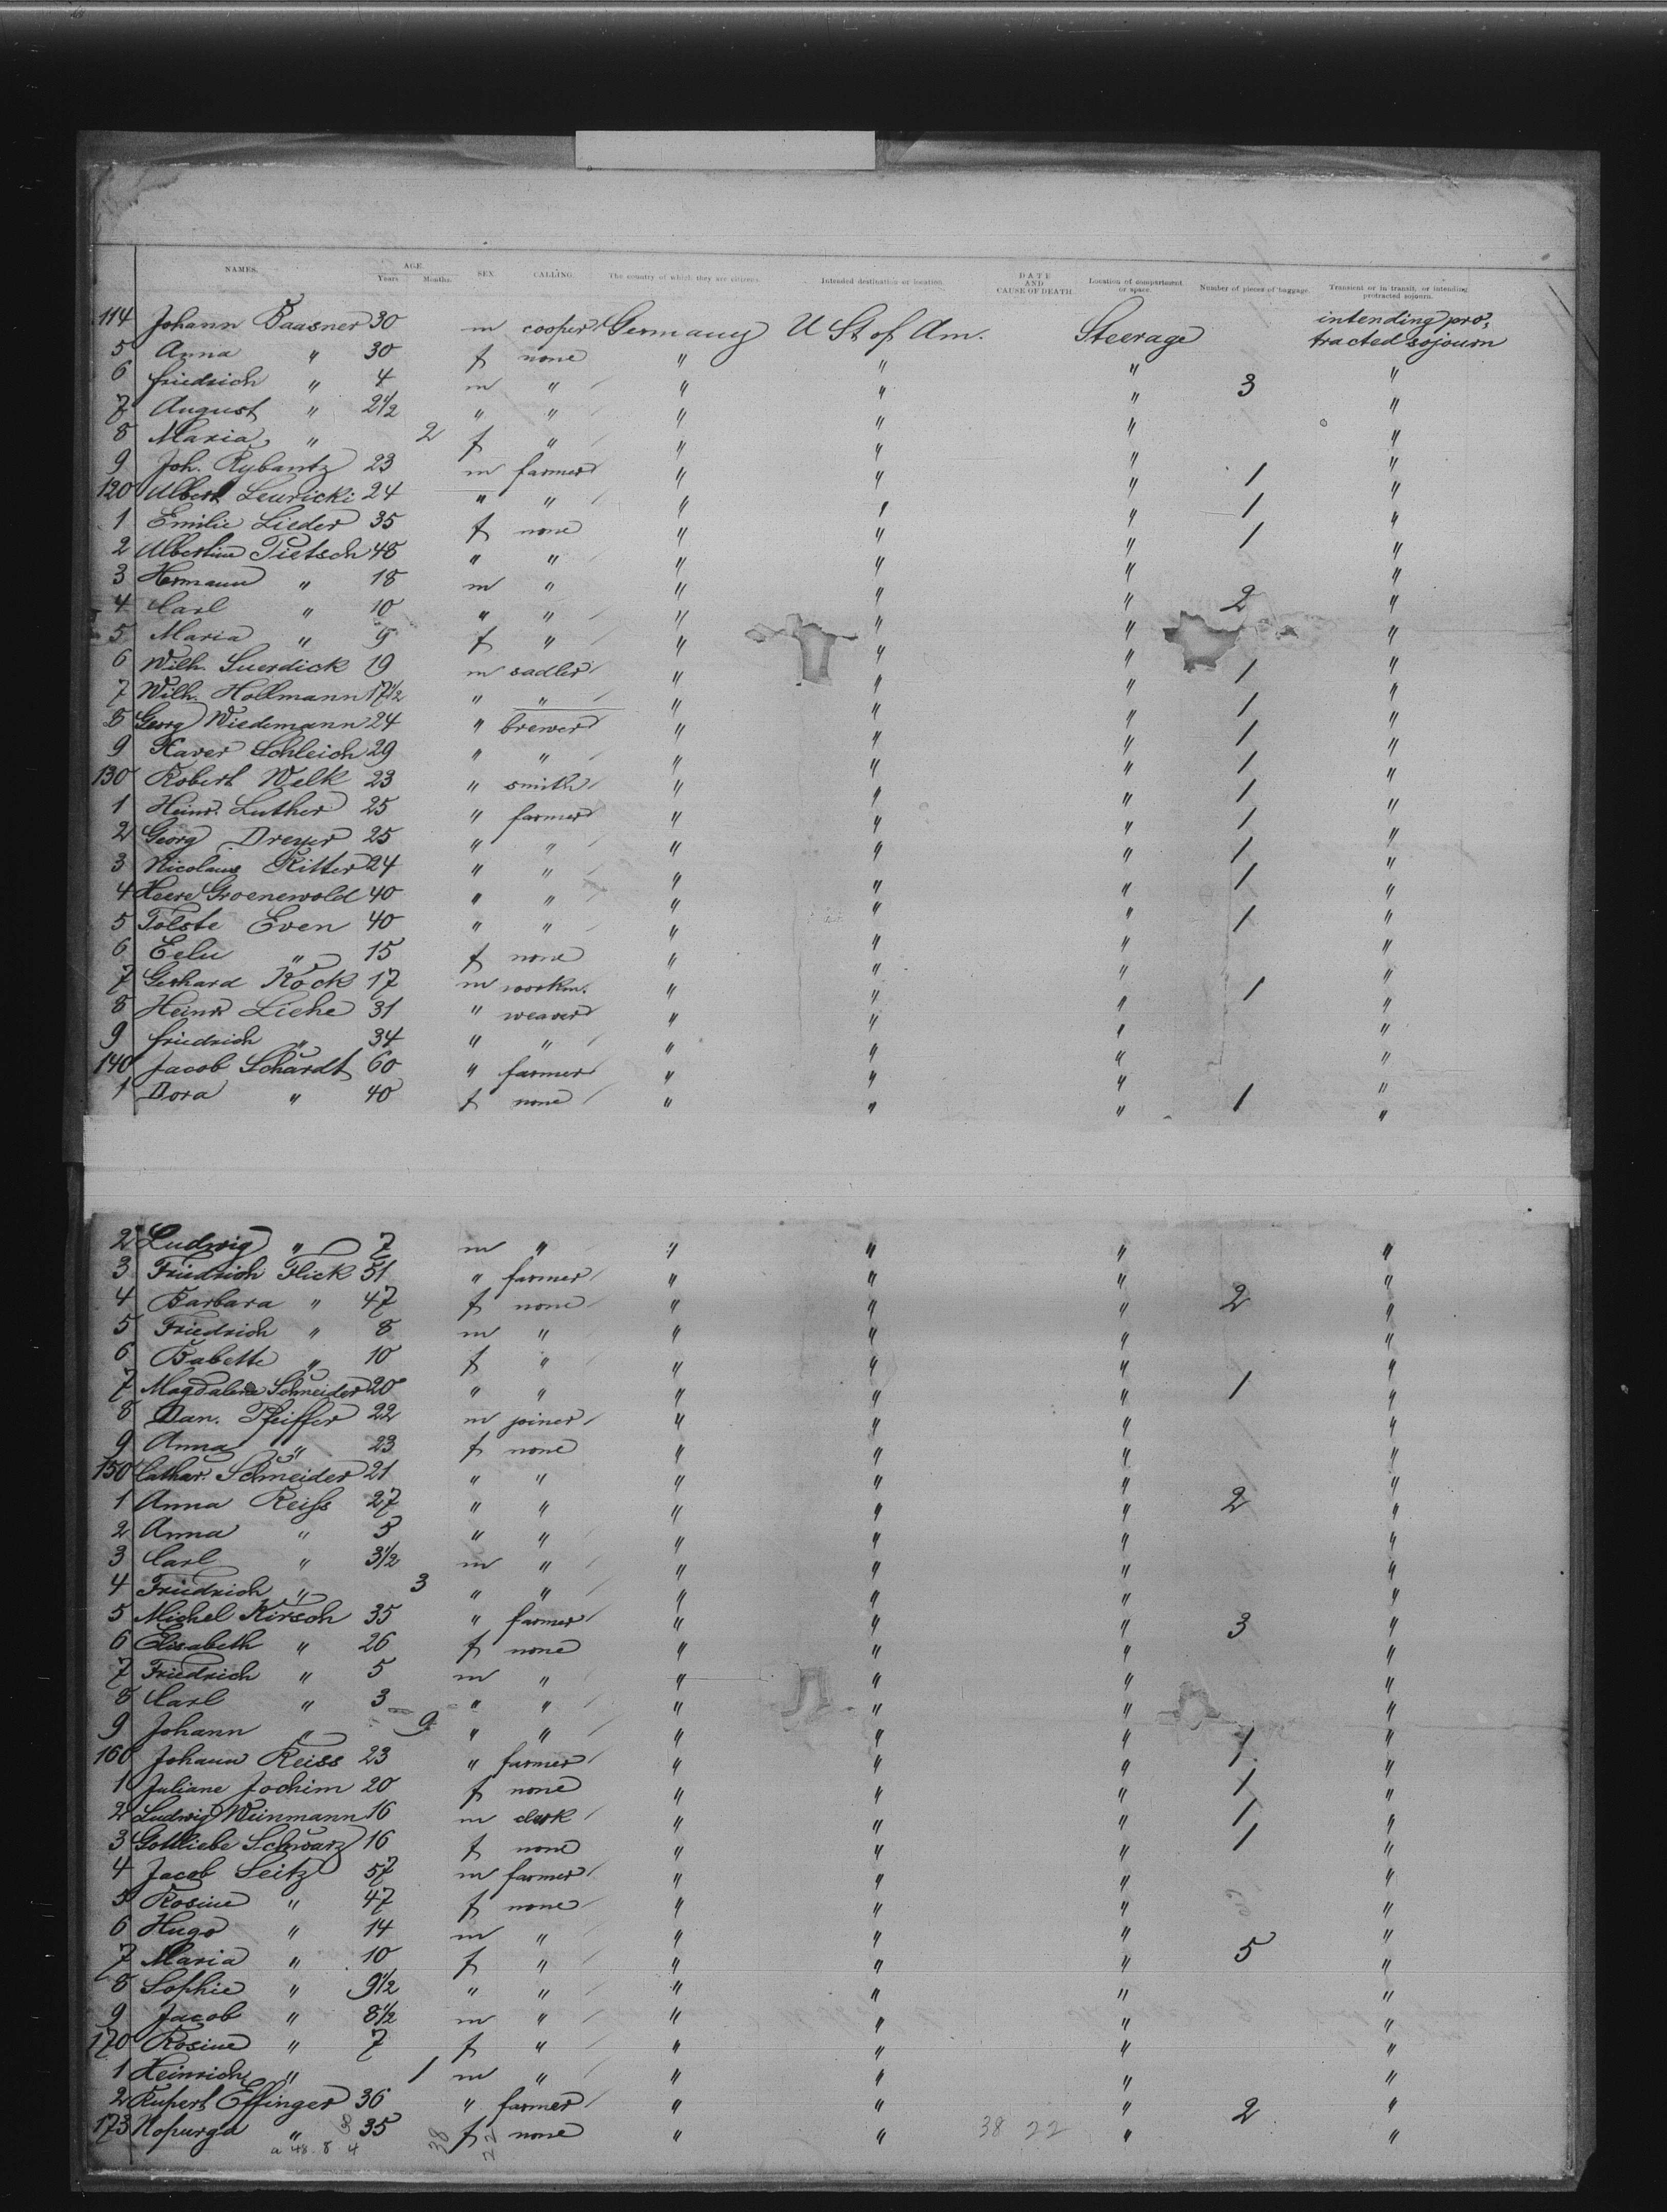 NAMES. AGE. Years Months. SEX. CALLING. The country of which they are citizens. Intended destination or location. DATE AND CAUSE OF DEATH. Location of compartment or space. Number of pieces of baggage. Transient or in transit, or intending protracted sojourn.
114 Johann Baasner 30 m cooper Germany U St of Am. Steerage intending pro-tracted sojourn
5 Anna " 30 f none " " " "
6 Friedrich " 4 m " " " " 3 "
7 August " 2 1/2 " " " " " "
8 Maria " 2 f " " " " "
9 Joh. Rybantz 23 m farmer " " " 1 "
120 Albert Leuricki 24 " " " " " 1 "
1 Emilie Lieder 35 f none " " " 1 "
2 Albertine Pietsch 48 " " " " " "
3 Hermann " 18 m " " " " 2 "
4 Carl " 10 " " " " " "
5 Maria " 9 f " " " " "
6 Wilh. Suerdick 19 m sadler " " " 1 "
7 Wilh. Hollmann 17 1/2 " " " " " 1 "
8 Georg Wiedemann 24 " brewer " " " 1 "
9 Xaver Schleich 29 " " " " " 1 "
130 Robert Welk 23 " smith " " " 1 "
1 Heinr. Luther 25 " farmer " " " 1 "
2 Georg Dreyer 25 " " " " " 1 "
3 Nicolaus Ritter 24 " " " " " 1 "
4 Heere Groenewold 40 " " " " " "
5 Tolste Even 40 " " " " " 1 "
6 Eelu " 15 f none " " " "
7 Gerhard Kock 17 m workm. " " " 1 "
8 Heinr. Liehe 31 " weaver " " " "
9 Friedrich " 34 " " " " " "
140 Jacob Schardt 60 " farmer " " " "
1 Dora " 40 f none " " " 1 "
2 Ludwig " 7 m " " " " "
3 Friedrich Flick 51 " farmer " " " "
4 Barbara " 47 f none " " " 2 "
5 Friedrich " 8 m " " " " "
6 Babette " 10 f " " " " "
7 Magdalena Schneider 20 " " " " " 1 "
8 Dan. Pfeiffer 22 m joiner " " " "
9 Anna " 23 f none " " " "
150 Cathar. Schneider 21 " " " " " "
1 Anna Reiss 27 " " " " " 2 "
2 Anna " 5 " " " " " "
3 Carl " 3 1/2 m " " " " "
4 Friedrich " 3 " " " " " "
5 Michel Kirsch 35 " farmer " " " 3 "
6 Elisabeth " 26 f none " " " "
7 Friedrich " 5 m " " " " "
8 Carl " 3 " " " " " "
9 Johann " 9 " " " " " 1 "
160 Johann Reiss 23 " farmer " " " 1 "
1 Juliane Jochim 20 f none " " " 1 "
2 Ludwig Weinmann 16 m clerk " " " 1 "
3 Gottliebe Schwarz 16 f none " " " 1 "
4 Jacob Seitz 57 m farmer " " " "
5 Rosine " 47 f none " " " "
6 Hugo " 14 m " " " " "
7 Maria " 10 f " " " " 5 "
8 Sophie " 9 1/2 " " " " " "
9 Jacob " 8 1/2 m " " " " "
170 Rosine " 7 f " " " " "
1 Heinrich " 1 m " " " " "
2 Rupert Effinger 36 " farmer " " " 2 "
173 Nopurga " 35 f none " " 38 22 " "
a 48 8 4 38 22